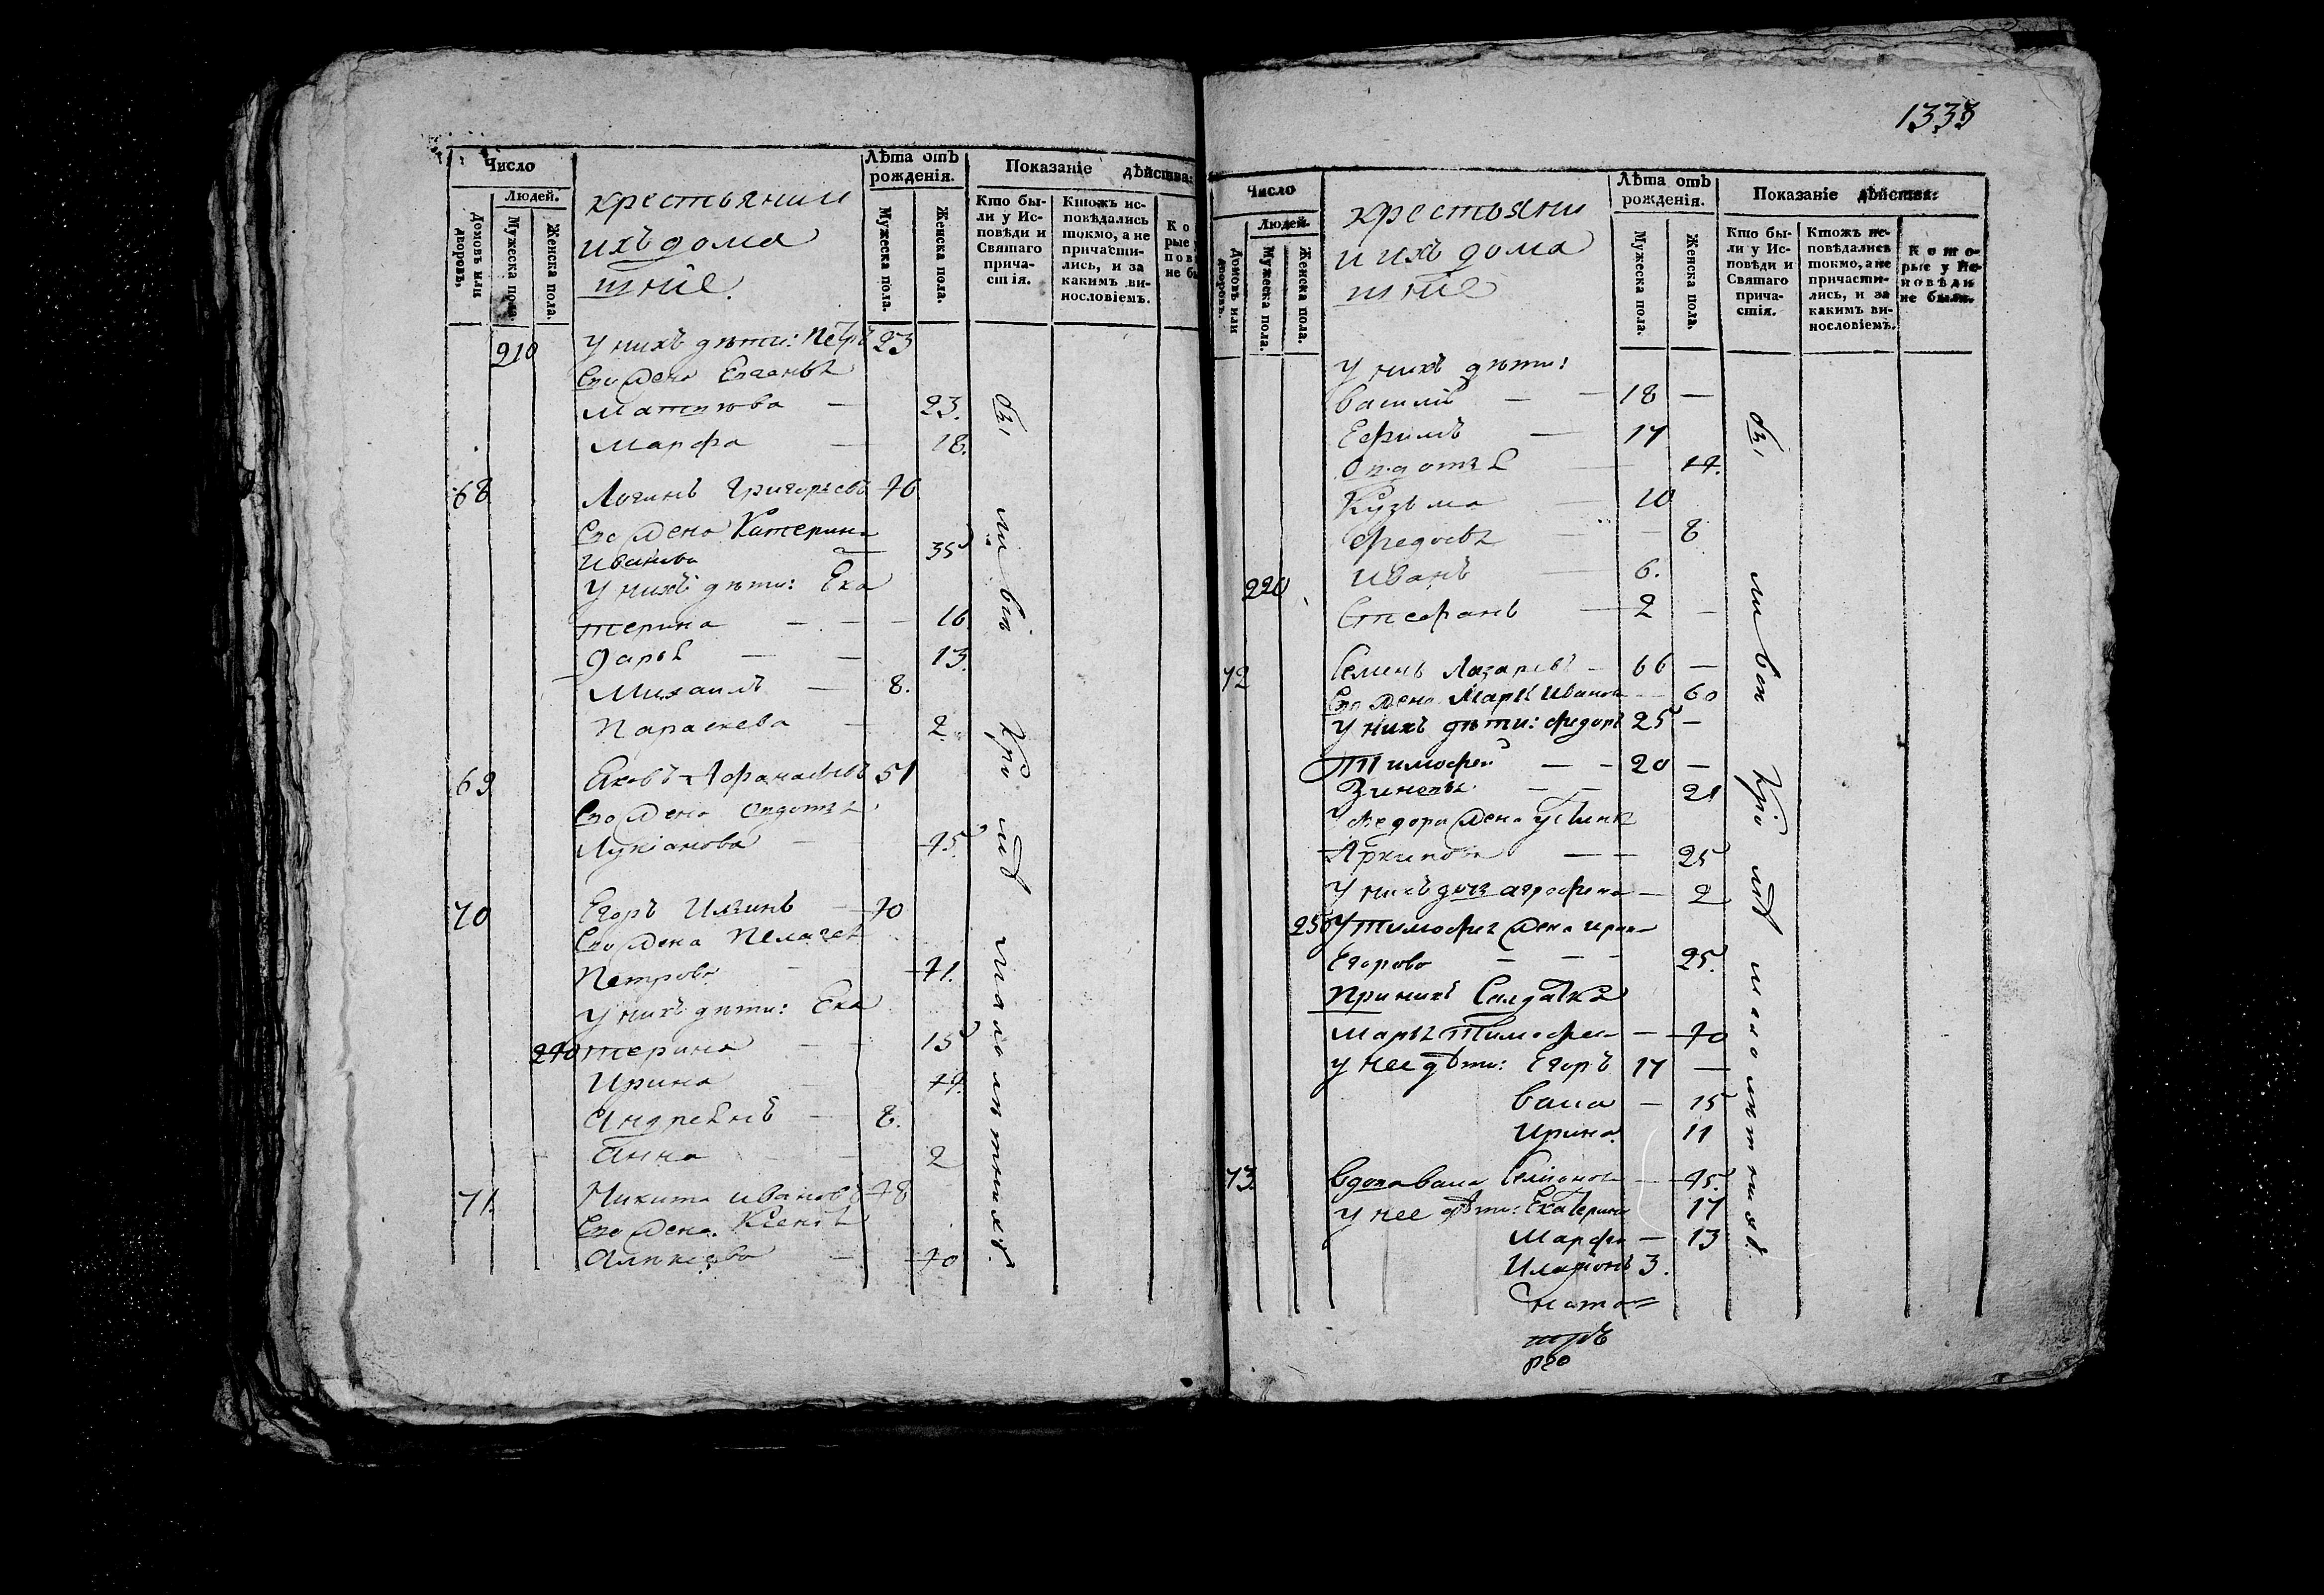 Число
Людей.
Домовъ или дворовъ.
Мужеска пола.
Женска пола.
крестьянии
ихъ дома
шніе.
Лѣта отъ рожденія.
Мужеска пола.
Женска пола.
Показаніе дѣйства:
Кто бы-
ли у Ис-
повѣди и
Святаго
прича-
стія.
Ктожъ ис-
повѣдались
токмо, а не
причасти-
лись, и за
какимъ ви-
нословіемъ.
Ко
рые
пов
не бы
210 У нихъ дѣти: Петръ 23
Его жена
23.
Марфа — 18.
68 Логинъ Григорьевъ 40
Его жена Катерина
Иванова — 35
У нихъ дѣти: Ека
терина — — — 16.
Дарья — — 13.
Михаилъ — 8.
Параскева — 2.
69 Аѳанасьевъ 51
Его жена Овдотья
Лукіанова — 45.
70 Егоръ 40
Его жена Пелагея
Петрова — 41.
У нихъ дѣти: Ека
240 терина — — 15
Ирина — 14.
Андреянъ — 8.
Анна — 2
71. Никита Ивановъ 48
Его жена Ксенья
40
бы ли всѣ Кро мѣ малолѣтнихъ.
1338
Число
Людей.
Домовъ или дворовъ.
Мужеска пола.
Женска пола.
крестьяни
и ихъ дома
шніе
Лѣта отъ
рожденія.
Мужеска пола.
Женска пола.
Показаніе дѣйства:
Кто бы-
ли у Ис-
повѣди и
Святаго
прича-
стія.
Ктожъ ис-
повѣдались
токмо, а не
причасти-
лись, и за
какимъ ви-
нословіемъ.
Кото-
рые у Ис-
повѣди
не были.
У нихъ дѣти:
Василій — — 18 —
Ефимъ — 17
Овдотья — 14.
Кузьма — 10
Федосья — — 8
220 Иванъ — 6.
Стефанъ — 2 —
72 Семенъ Лазаревъ — 66 —
Его жена Марья Иванова — 60
У нихъ дѣти: Федоръ 25 —
Тимофей — — 20 —
Зиновья — — 21
У Федора жена Устинья
Архипова — — 25
У нихъ дочь Агрофена — 2
250 У Тимофея жена Ирина
Егорова — — — 25.
При нихъ Салдатка
Марья Тимофеева — 40
У нее дѣти: Егоръ 17 —
Васа — 15
Ирина 11
73. Вдова Васа Семіонова — 45.
У нее дѣти: Екатерина 17
Марфа — 13
Иларіонъ 3.
бы ли всѣ Кро мѣ малолѣтнихъ.